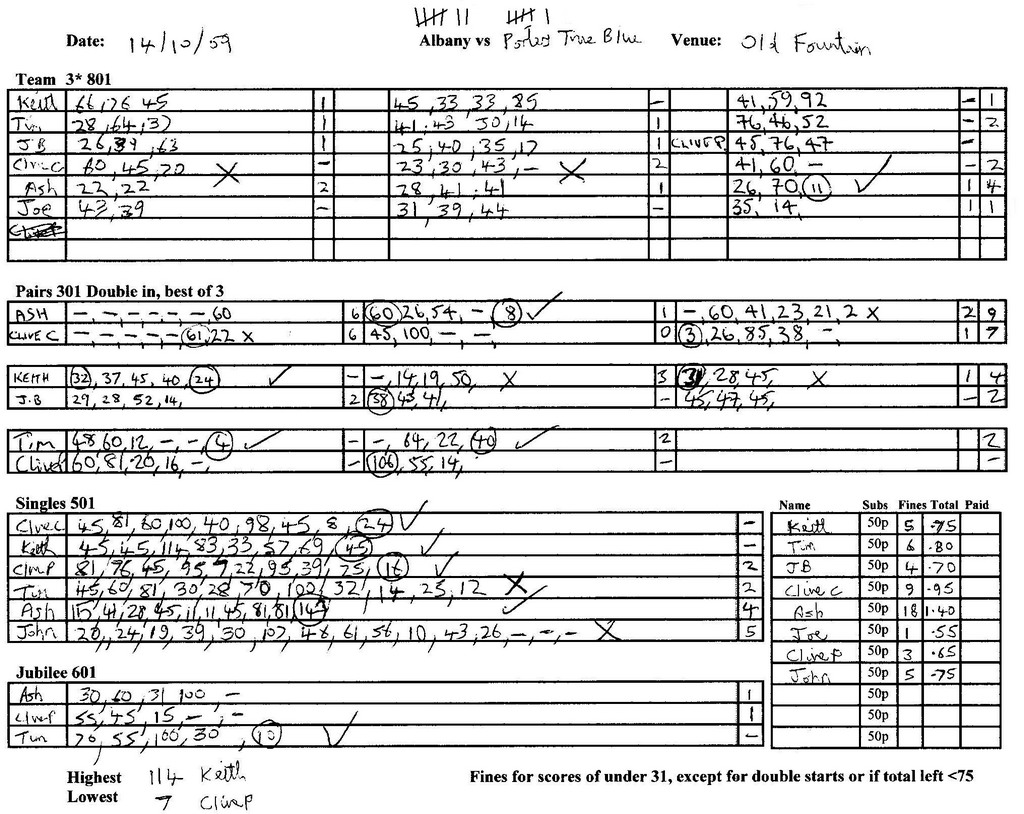 Date: 14/10/59 Albany vs Porters True Blue Venue: Old Fountain
Team 3* 801
Keith 66, 76 45 1 45, 33, 33, 85 - 41, 59, 92 - 1
Tim 28, 64, 37 1 41, 43 30, 14 1 76, 46, 52 - 2
JB 26, 39, 63 1 25, 40, 35, 17 1 CLIVE P 45, 76, 47 -
Clive C 60, 45, 20 X - 23, 30, 43, - X 2 41, 60, - ✓ - 2
Ash 22, 22 2 28, 41, 41 1 26, 70, 11 ✓ 1 4
Joe 43, 39 - 31, 39, 44 - 35, 14, 1 1
Pairs 301 Double in, best of 3
ASH -, -, -, -, -, -, 60 6 60, 26, 54, -, 8 ✓ 1 -, 60, 41, 23, 21, 2 X 2 9
CLIVE C -, -, -, -, -, 61, 22 X 6 45, 100, -, - 0 3, 26, 85, 38, -, 1 7
KEITH 32, 37, 45, 40, 24 ✓ - -, 14, 19, 50, X 3 31, 28, 45, X 1 4
J.B 29, 28, 52, 14, 2 38, 43, 41, - 45, 47, 45, - 2
Tim 48, 60, 12, -, -, 4 ✓ - -, 64, 22, 40 ✓ 2 2
Clive P 60, 81, 20, 16, -, - 106, 55, 14, - -
Singles 501
Clive C 45, 81, 60, 100, 40, 98, 45, 8, 24 ✓ -
Keith 45, 45, 114, 83, 33, 57, 69, 45 ✓ -
Clive P 81, 76, 45, 95, 7, 22, 95, 39, 75, 16 ✓ 2
Tim 45, 60, 81, 30, 28, 70, 100, 32, 14, 25, 12 X 2
Ash 15, 41, 28, 45, 11, 11, 45, 81, 81, 14 ✓ 4
John 20, 24, 19, 39, 30, 107, 46, 61, 56, 10, 43, 26, -, -, - X 5
Jubilee 601
Ash 30, 60, 31, 100, - 1
Clive P 55, 45, 15, -, - 1
Tim 76, 55, 100, 30, 10 ✓ -
Name Subs Fines Total Paid
Keith 50p 5 .75
Tim 50p 6 .80
JB 50p 4 .70
Clive C 50p 9 .95
Ash 50p 18 1.40
Joe 50p 1 .55
Clive P 50p 3 .65
John 50p 5 .75
50p
50p
50p
Highest 114 Keith
Lowest 7 Clive P
Fines for scores of under 31, except for double starts or if total left <75